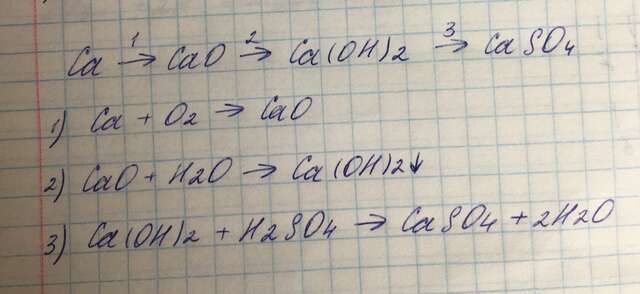 Ca 1→ CaO 2→ Ca(OH)2 3→ CaSO4
1) Ca + O2 → CaO
2) CaO + H2O → Ca(OH)2↓
3) Ca(OH)2 + H2SO4 → CaSO4 + 2H2O